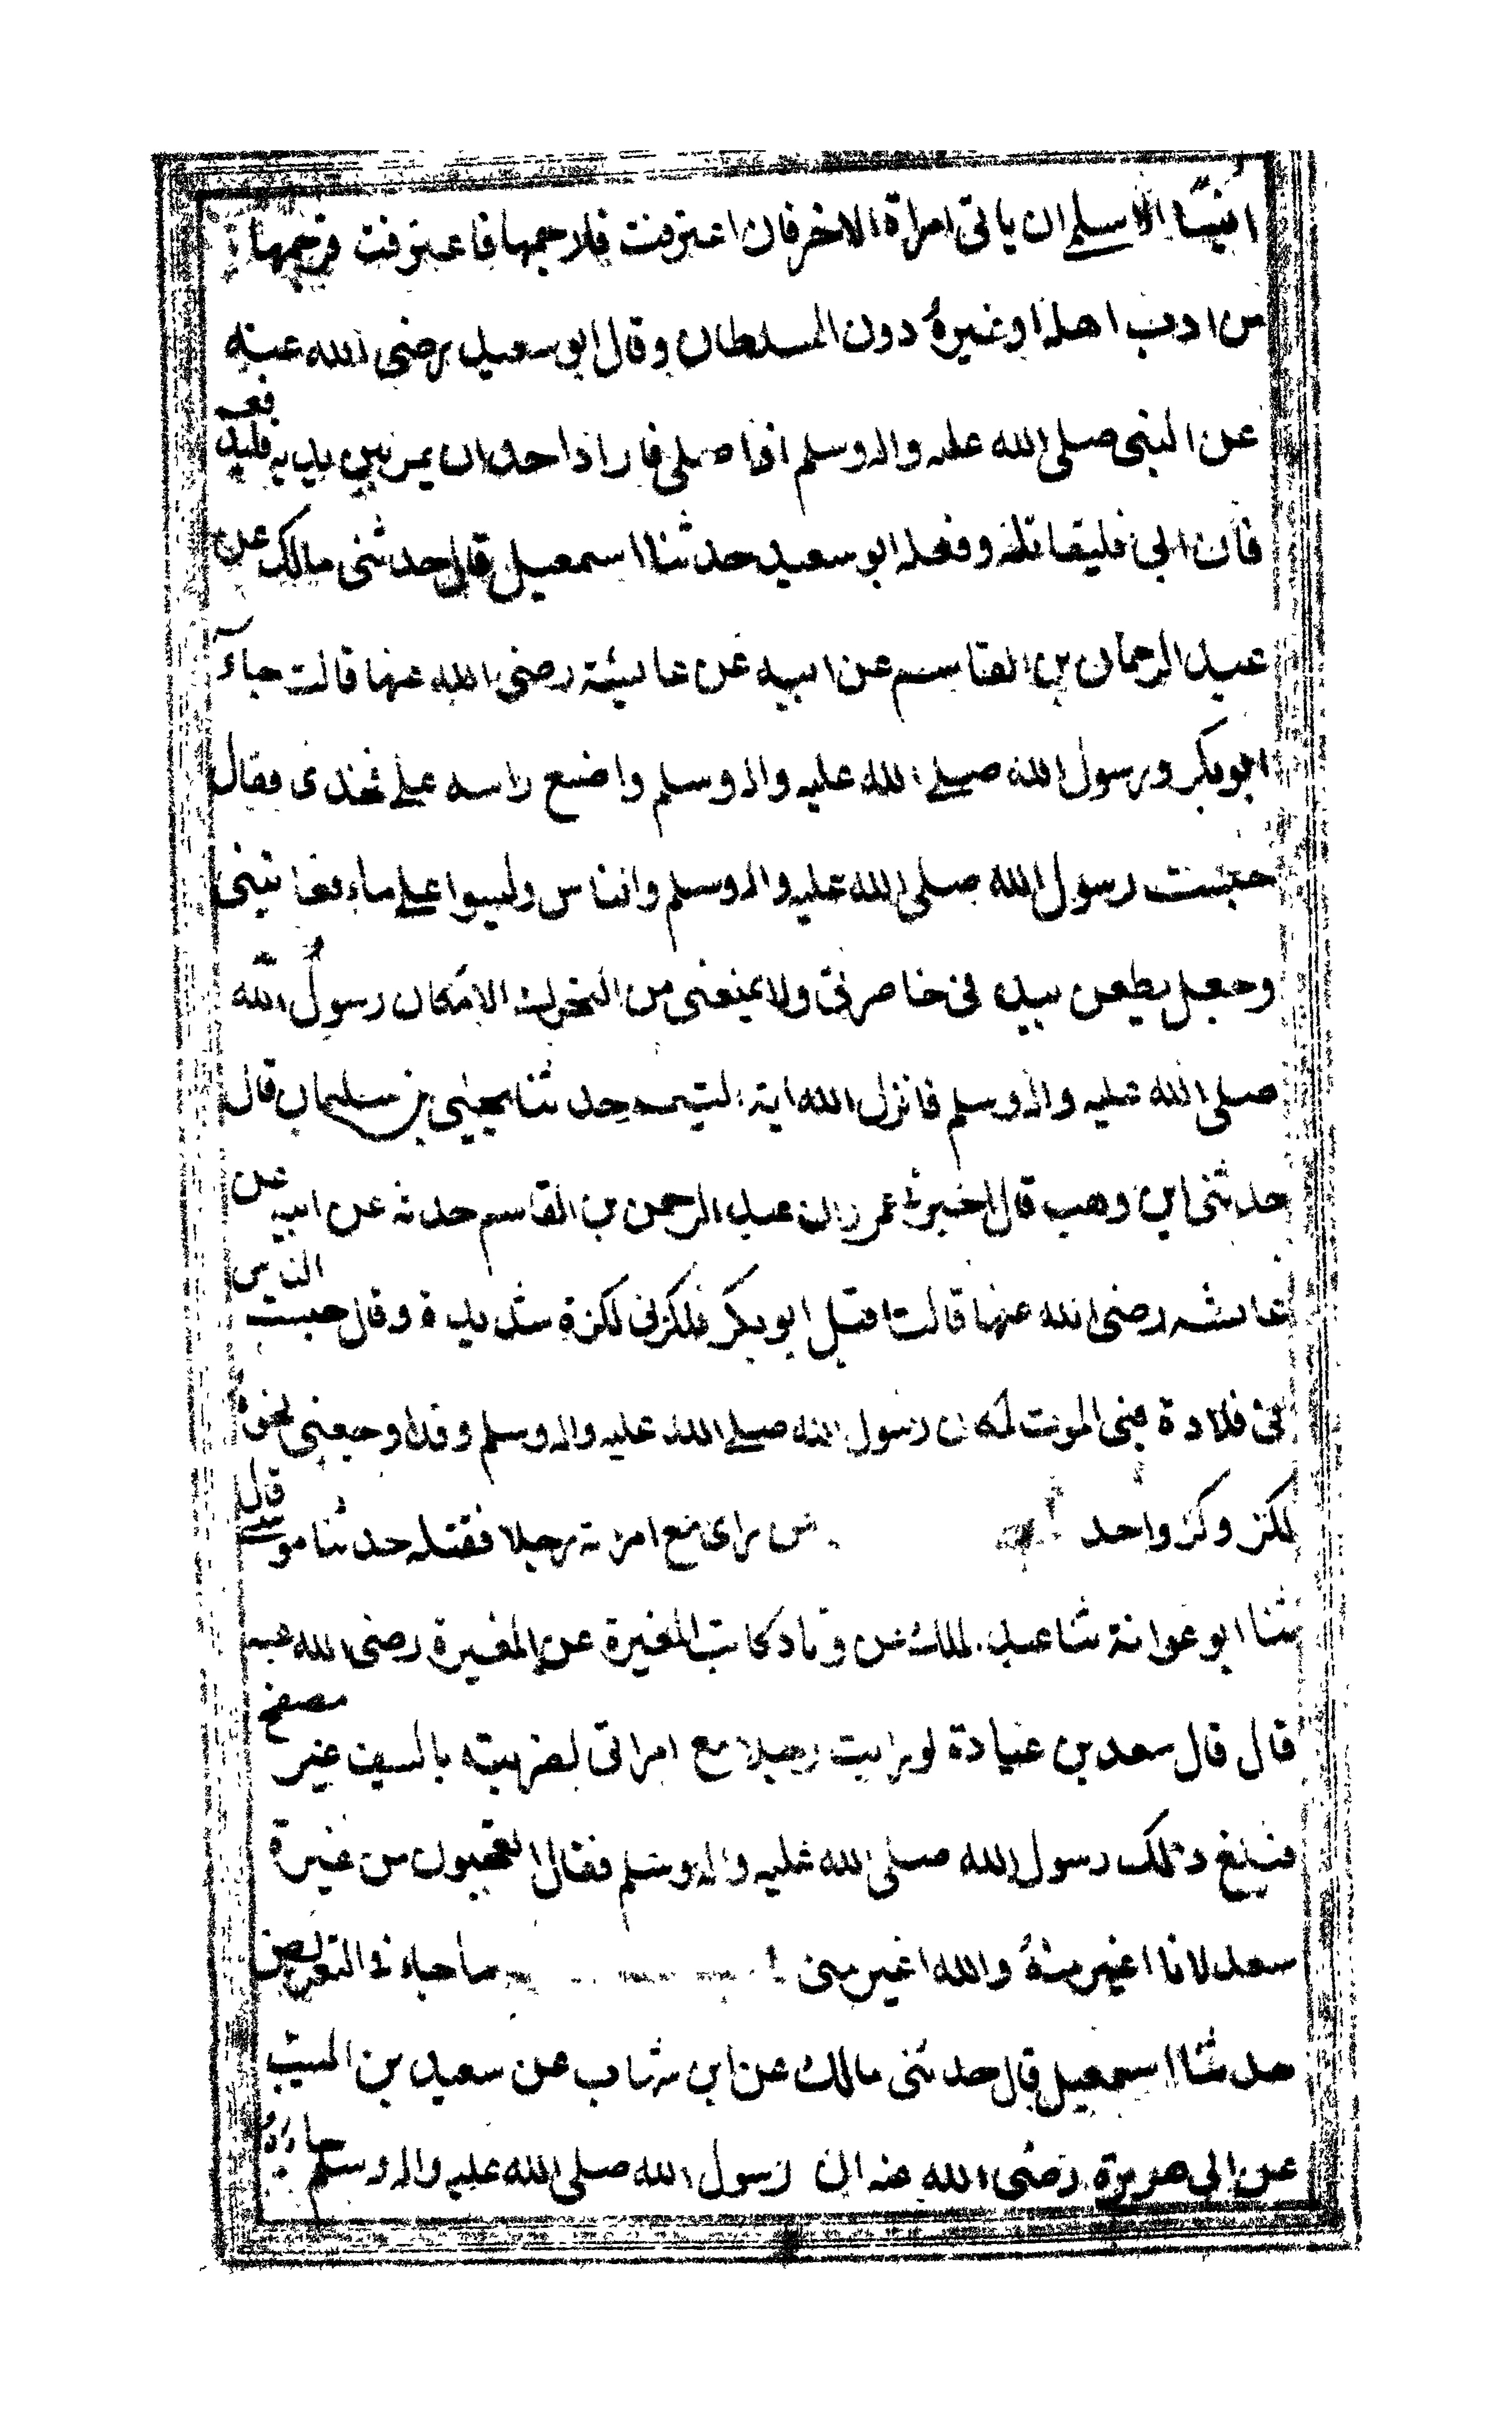 انيسا الاسلمى ان ياتى امراة الاخر فان اعترفت فلارجمها فاعترفت فرجمها
من ادب اهله او غيره دون السلطان وقال ابو سعيد رضى الله عنه
عن النبى صلى الله عليه واله وسلم اذا صلى فاراد احد ان يمر بين يديه فليدفعه
فان ابى فليقاتله وفعله ابو سعيد حدثنا اسمعيل قال حدثنى مالك عن
عبد الرحمان بن القاسم عن ابيه عن عايشة رضى الله عنها قالت جاء
ابو بكر ورسول الله صلى الله عليه واله وسلم واضع راسه على فخذى فقال
حبست رسول الله صلى الله عليه واله وسلم والناس وليسوا على ماء فعاتبنى
وجعل يطعن بيده فى خاصرتى ولا يمنعنى من التحرك الا مكان رسول الله
صلى الله عليه واله وسلم فانزل الله اية التيمم حدثنا يحيى بن سليمان قال
حدثنى ابن وهب قال اخبرنى عمر ان عبد الرحمن بن القاسم حدثه عن ابيه عن
عايشه رضى الله عنها قالت اقبل ابو بكر فلكزنى لكزة شديدة وقال حبست الناس
فى قلادة فبى الموت لمكان رسول الله صلى الله عليه واله وسلم وقد اوجعنى نحوه
لكز وكز واحد من راى مع امراته رجلا فقتله حدثنا موسى قال
ثنا ابو عوانة ثنا عبد الملك عن وراد كاتب المغيرة عن المغيرة رضى الله عنه
قال قال سعد بن عبادة لو رايت رجلا مع امراتى لضربته بالسيف غير مصفح
فبلغ ذلك رسول الله صلى الله عليه واله وسلم فقال اتعجبون من غيرة
سعد لانا اغير منه والله اغير منى ما جاء فى التعريض
حدثنا اسمعيل قال حدثنى مالك عن ابن شهاب عن سعيد بن المسيب
عن ابى هريرة رضى الله عنه ان رسول الله صلى الله عليه واله وسلم جاءه